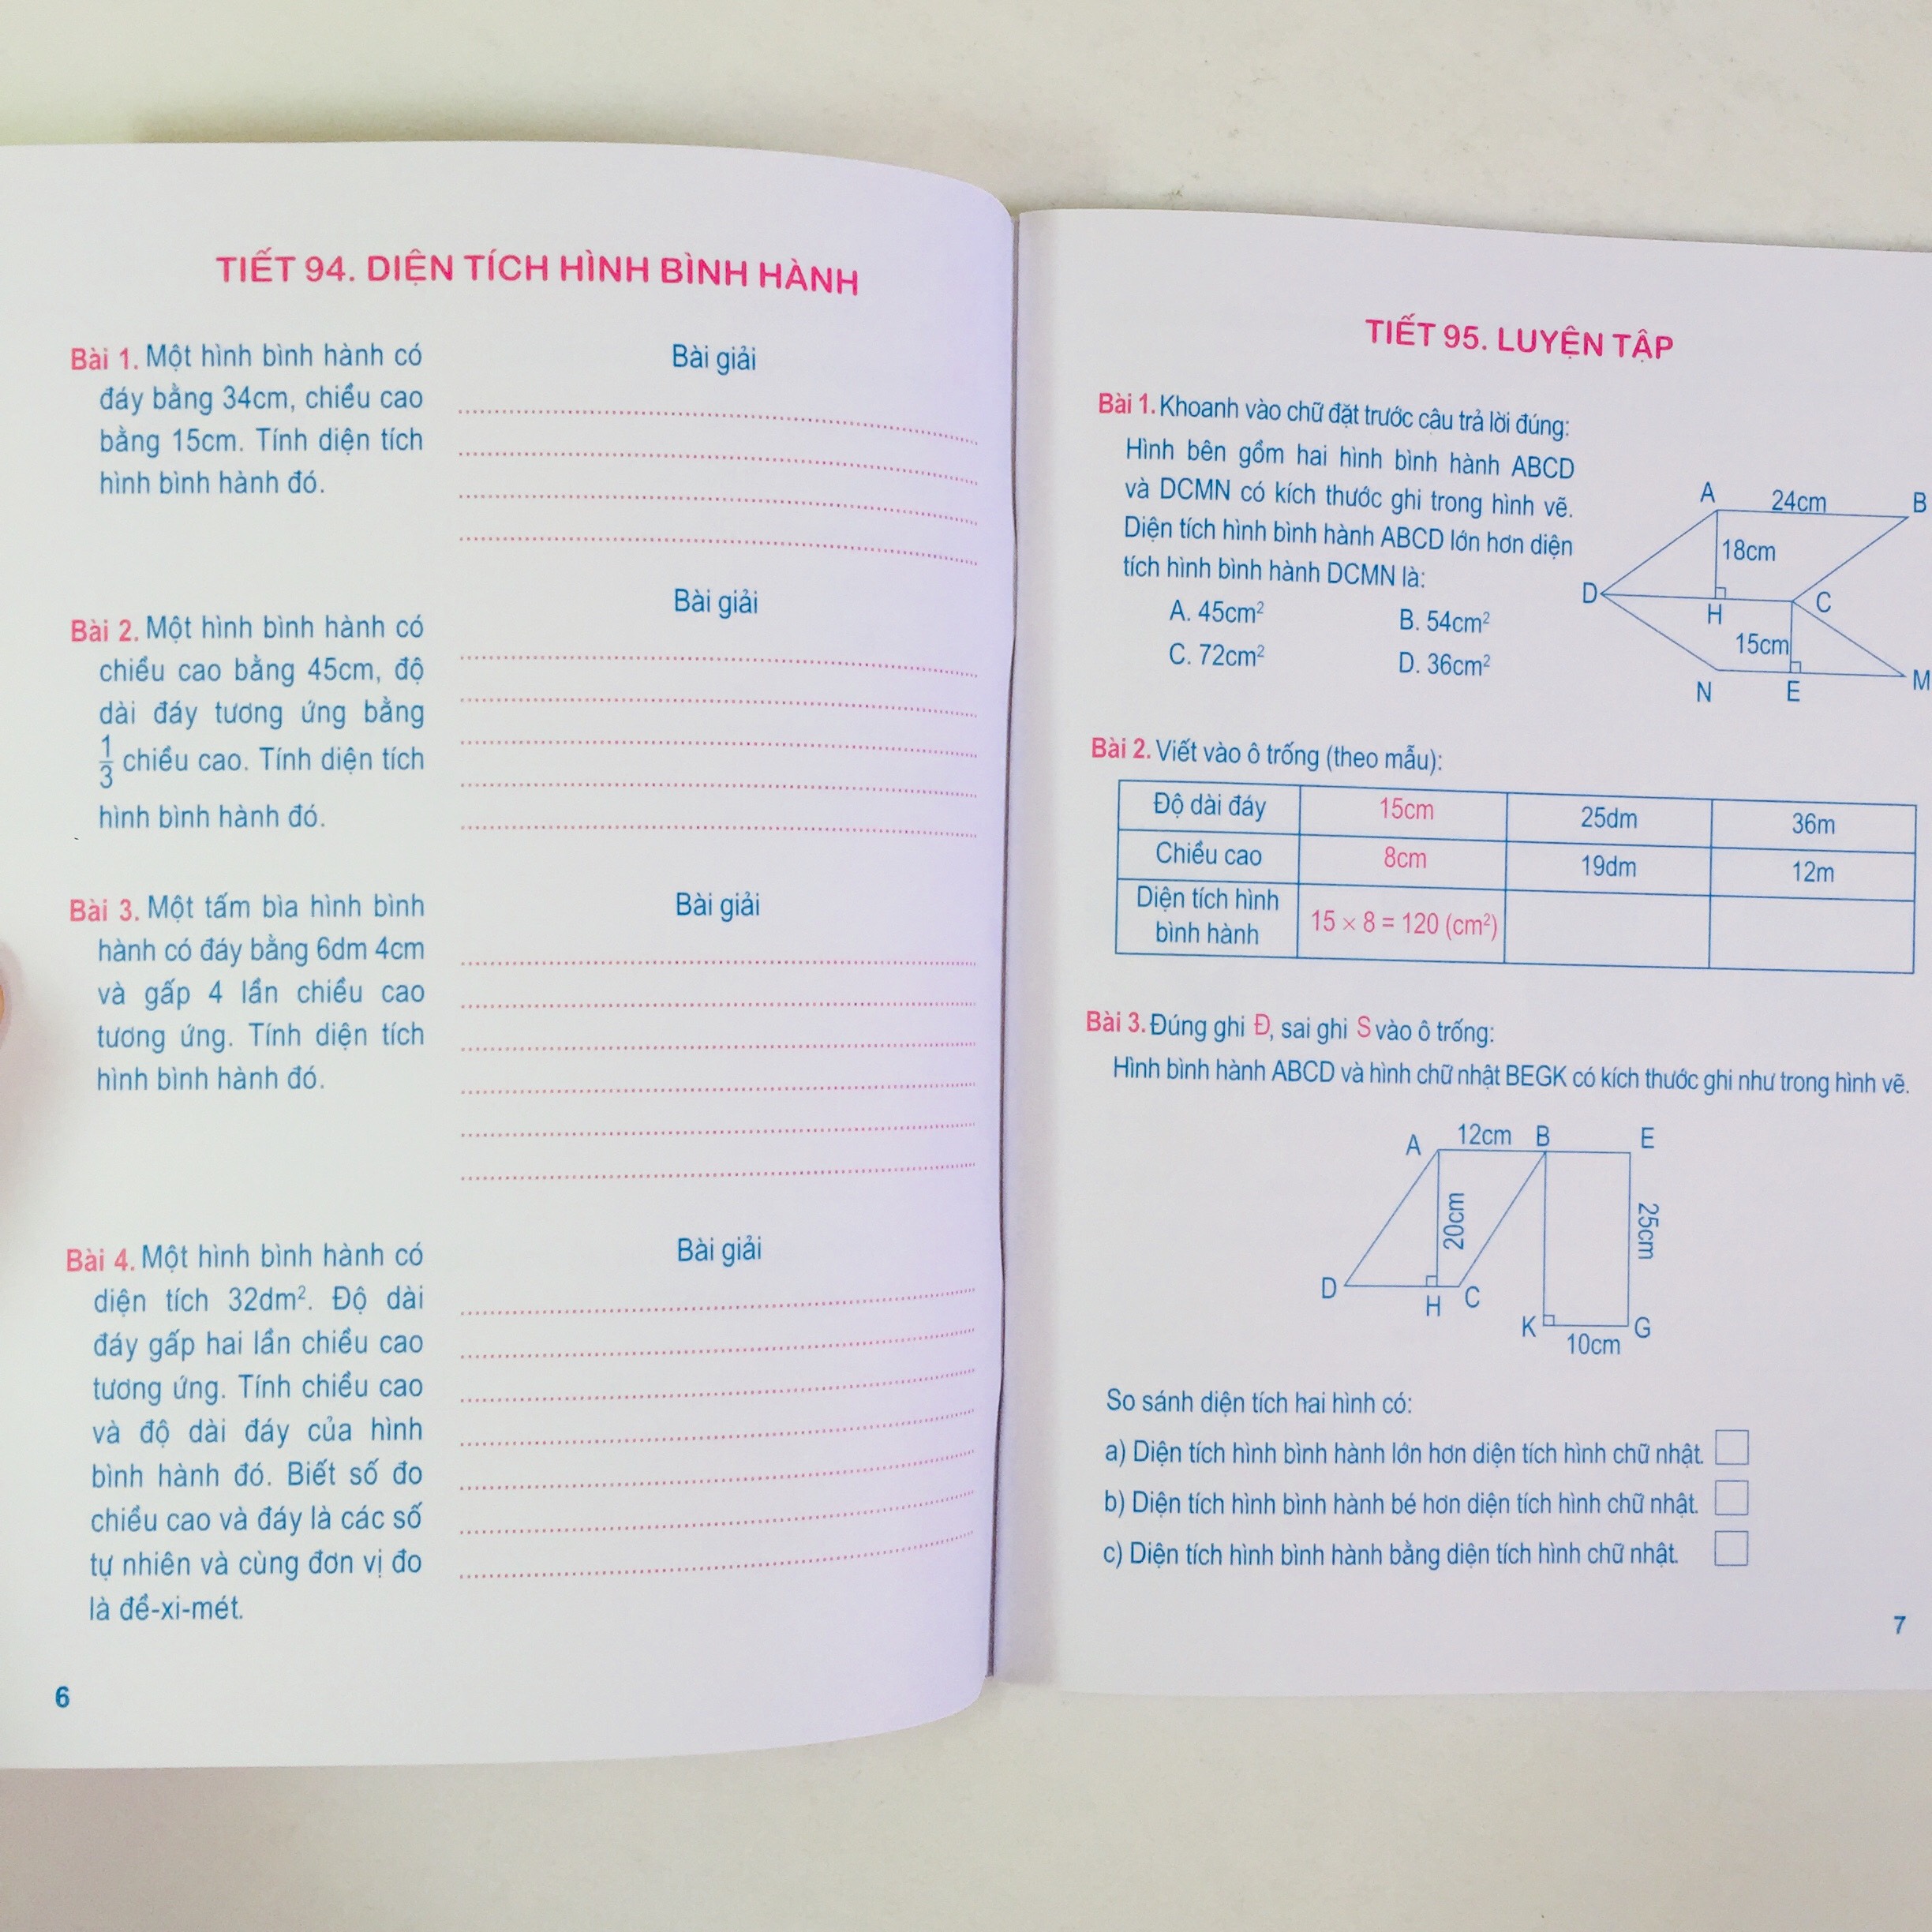 TIẾT 94. DIỆN TÍCH HÌNH BÌNH HÀNH
Bài 1. Một hình bình hành có
đáy bằng 34cm, chiều cao
bằng 15cm. Tính diện tích
hình bình hành đó.
Bài giải
Bài 2. Một hình bình hành có
chiều cao bằng 45cm, độ
dài đáy tương ứng bằng
1/3 chiều cao. Tính diện tích
hình bình hành đó.
Bài giải
Bài 3. Một tấm bìa hình bình
hành có đáy bằng 6dm 4cm
và gấp 4 lần chiều cao
tương ứng. Tính diện tích
hình bình hành đó.
Bài giải
Bài 4. Một hình bình hành có
diện tích 32dm². Độ dài
đáy gấp hai lần chiều cao
tương ứng. Tính chiều cao
và độ dài đáy của hình
bình hành đó. Biết số đo
chiều cao và đáy là các số
tự nhiên và cùng đơn vị đo
là đề-xi-mét.
Bài giải
6
TIẾT 95. LUYỆN TẬP
Bài 1. Khoanh vào chữ đặt trước câu trả lời đúng:
Hình bên gồm hai hình bình hành ABCD
và DCMN có kích thước ghi trong hình vẽ.
Diện tích hình bình hành ABCD lớn hơn diện
tích hình bình hành DCMN là:
A. 45cm² B. 54cm²
C. 72cm² D. 36cm²
A 24cm B
18cm
D H C
15cm
N E M
Bài 2. Viết vào ô trống (theo mẫu):
Độ dài đáy 15cm 25dm 36m
Chiều cao 8cm 19dm 12m
Diện tích hình
bình hành 15 × 8 = 120 (cm²)
Bài 3. Đúng ghi Đ, sai ghi S vào ô trống:
Hình bình hành ABCD và hình chữ nhật BEGK có kích thước ghi như trong hình vẽ.
A 12cm B E
20cm 25cm
D H C
K G
10cm
So sánh diện tích hai hình có:
a) Diện tích hình bình hành lớn hơn diện tích hình chữ nhật.
b) Diện tích hình bình hành bé hơn diện tích hình chữ nhật.
c) Diện tích hình bình hành bằng diện tích hình chữ nhật.
7